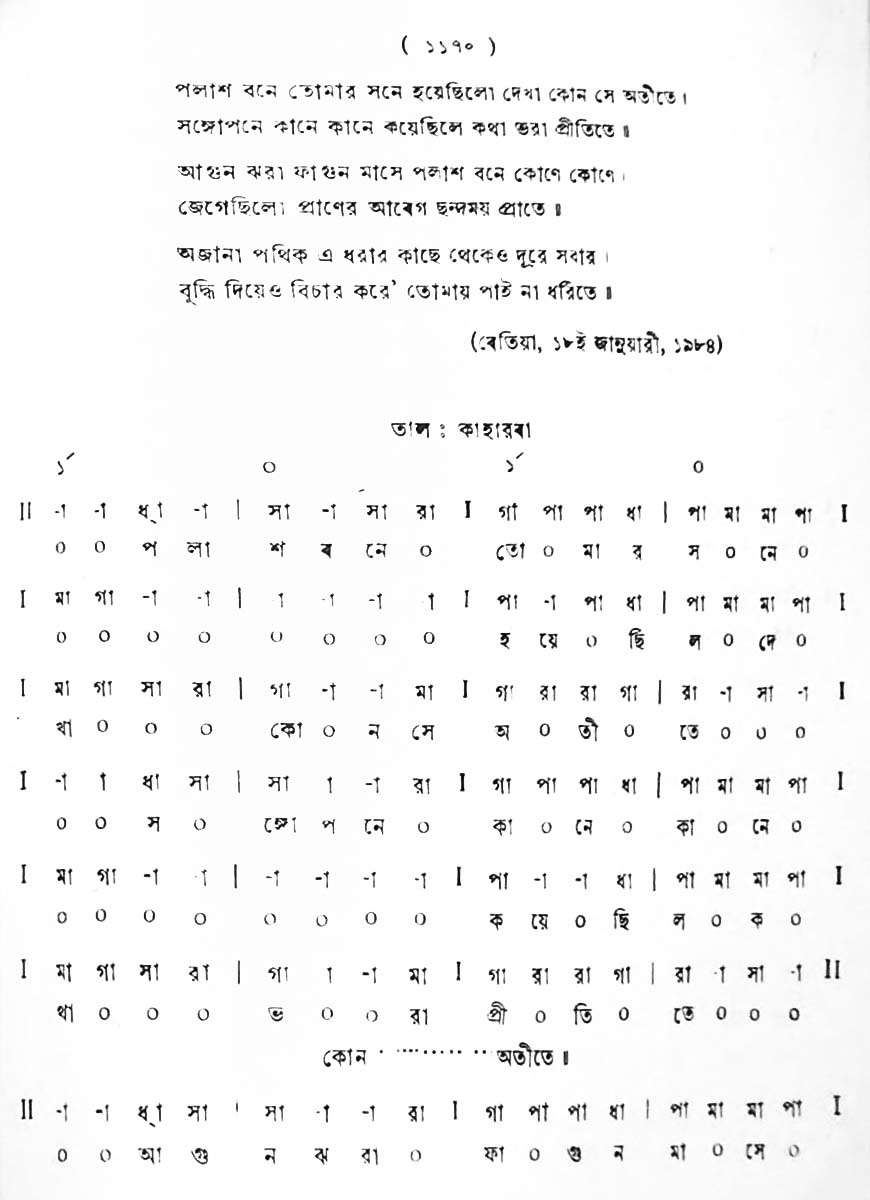 ( ১১৭০ )
পলাশ বনে তোমার সনে হয়েছিলো দেখা কোন সে অতীতে।
সঙ্গোপনে কানে কানে কয়েছিলে কথা ভরা প্রীতিতে॥
আগুন ঝরা ফাগুন মাসে পলাশ বনে কোণে কোণে।
জেগেছিলো প্রাণের আবেগ ছন্দময় প্রাতে॥
অজানা পথিক এ ধরার কাছে থেকেও দূরে সবার।
বুদ্ধি দিয়েও বিচার করে' তোমায় পাই না ধরিতে॥
(বেতিয়া, ১৮ই জানুয়ারী, ১৯৮৪)
তাল : কাহারবা
১´ ০ ১´ ০
II -া -া ধ্া -া | সা -া সা রা I গা পা পা ধা | পা মা মা পা I
০ ০ প লা শ ব নে ০ তো ০ মা র স ০ নে ০
I মা গা -া -া | া -া -া া I পা -া পা ধা | পা মা মা পা I
০ ০ ০ ০ ০ ০ ০ ০ হ য়ে ০ ছি ল ০ দে ০
I মা গা সা রা | গা -া -া মা I গা রা রা গা | রা -া সা -া I
খা ০ ০ ০ কো ০ ন সে অ ০ তী ০ তে ০ ০ ০
I -া া ধা সা | সা া -া রা I গা পা পা ধা | পা মা মা পা I
০ ০ স ০ ঙ্গো প নে ০ কা ০ নে ০ কা ০ নে ০
I মা গা -া া | -া -া -া -া I পা -া -া ধা | পা মা মা পা I
০ ০ ০ ০ ০ ০ ০ ০ ক য়ে ০ ছি ল ০ ক ০
I মা গা সা রা | গা া -া মা I গা রা রা গা | রা -া সা -া II
থা ০ ০ ০ ভ ০ ০ রা প্রী ০ তি ০ তে ০ ০ ০
কোন ........... অতীতে॥
II -া -া ধ্া সা | সা -া -া রা I গা পা পা ধা | পা মা মা পা I
০ ০ আ গু ন ঝ রা ০ ফা ০ গু ন মা ০ সে ০